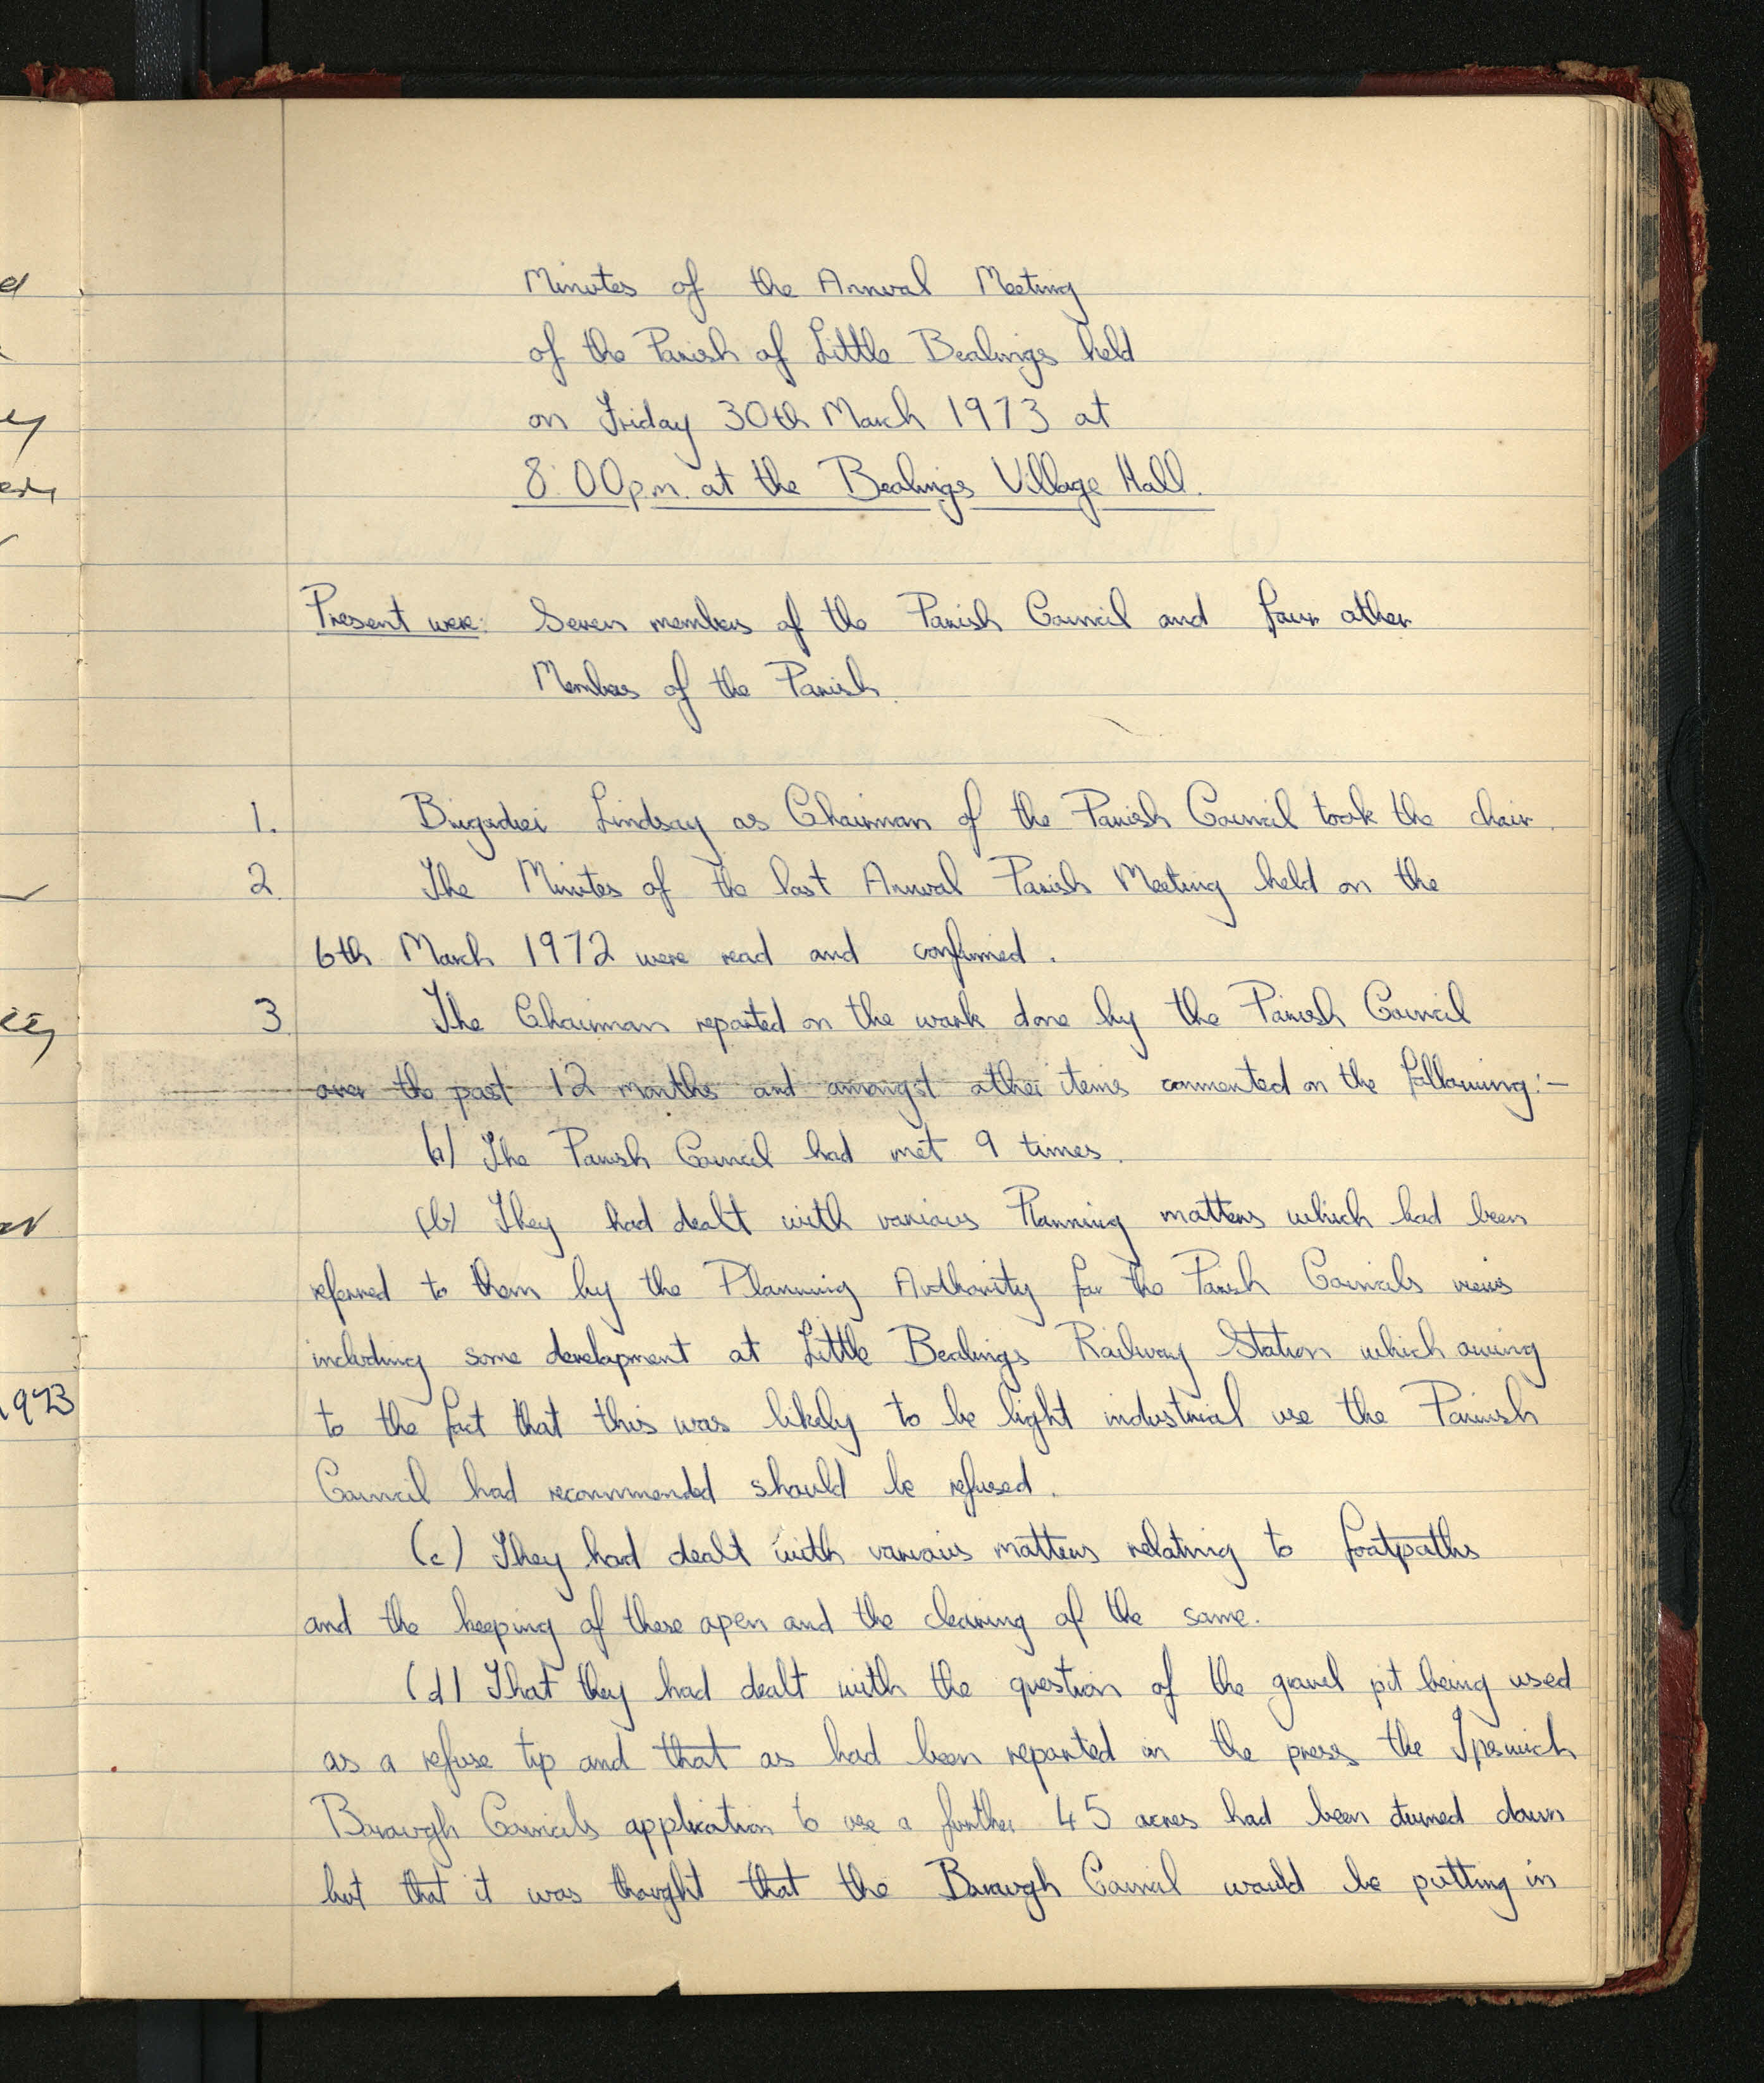 Minutes of the Annual Meeting
of the Parish of Little Bealings held
on Friday 30th March 1973 at
8.00p.m. at the Bealings Village Hall.
Present were: Seven members of the Parish Council and four other
Members of the Parish.
1. Brigadier Lindsay as Chairman of the Parish Council took the chair.
2. The Minutes of the last Annual Parish Meeting held on the
6th March 1972 were read and confirmed.
3. The Chairman reported on the work done by the Parish Council
over the past 12 months and amongst other items commented on the following:-
(a) The Parish Council had met 9 times.
(b) They had dealt with various Planning matters which had been
referred to them by the Planning Authority for the Parish Councils views
including some development at Little Bealings Railway Station which owing
to the fact that this was likely to be light industrial use the Parish
Council had recommended should be refused.
(c) They had dealt with various matters relating to footpaths
and the keeping of these open and the clearing of the same.
(d) That they had dealt with the question of the gravel pit being used
as a refuse tip and that as had been reported in the press the Ipswich
Borough Councils application to use a further 45 acres had been turned down
but that it was thought that the Borough Council would be putting in
1973